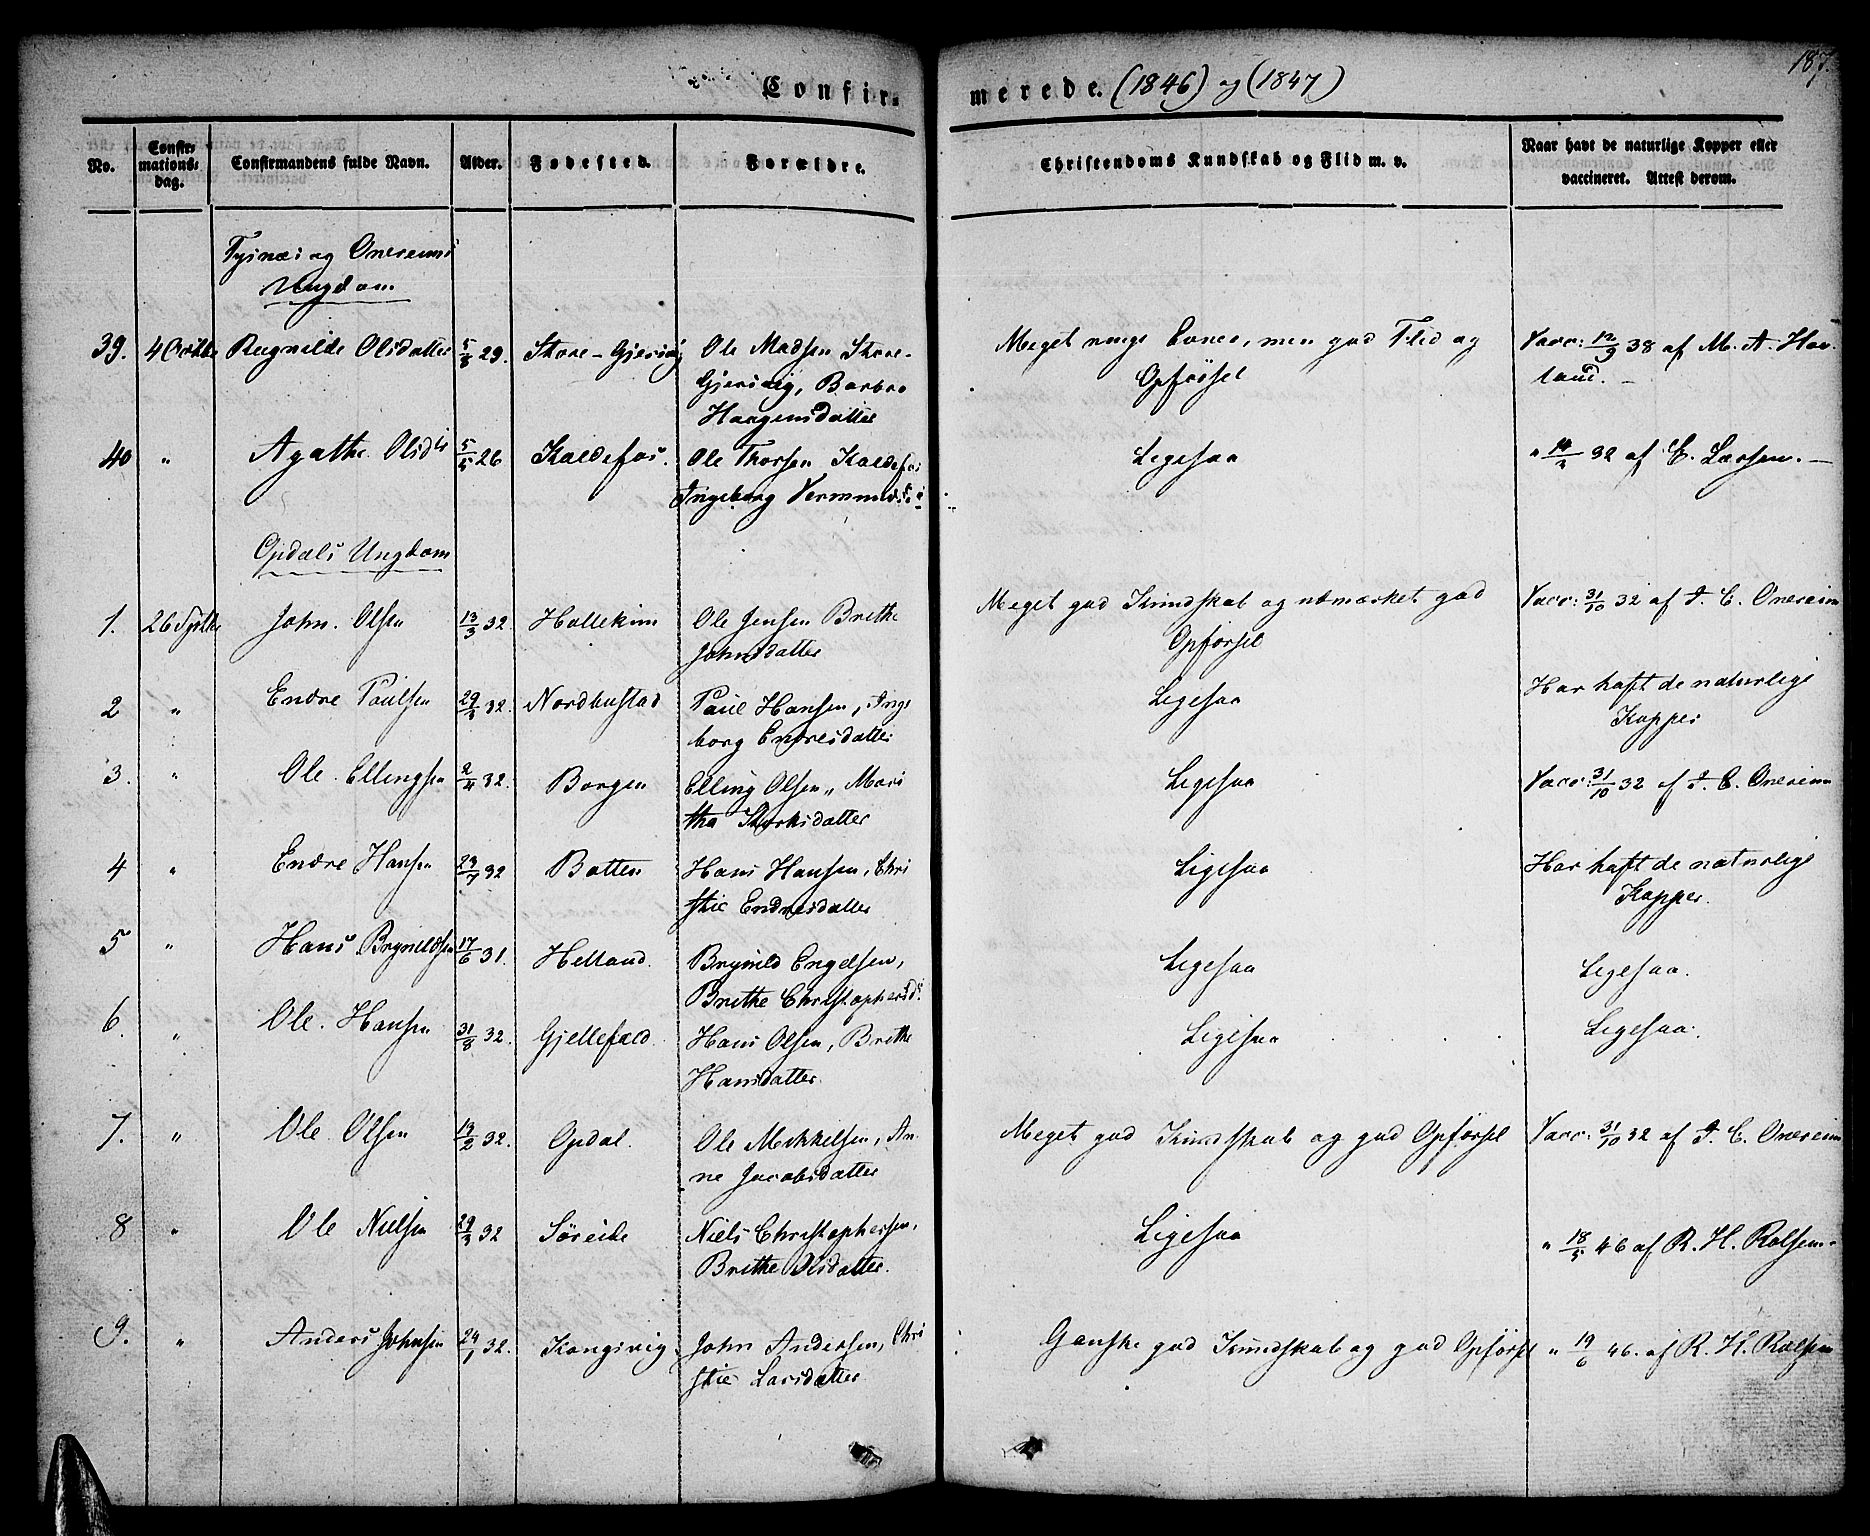 187.
Confirmerede. (1846) og (1847)
No. Confirmationsdag. Confirmandens fulde Navn. Alder. Fødested. Forældre. Christendoms Kundskab og Flid m. v. Naar havt de naturlige Kopper eller vaccineret. Attest derom.
Tysnæs og Onereims
Ungdom
39. 4 Octbr Ragnilde Olsdatter 5/8 29. Store-Gjersvig Ole Madsen Store- Meget ringe Evner, men god Flid og Vacc: 12/9 38 af M. A. Hov-
Gjersvig, Barbro Opførsel land. –
Haagensdatter
40 " Agathe Olsdtr 5/5 26 Kaldefos. Ole Thorsen Kaldefos Ligesaa " 32 af E. Larsen. –
Ingeborg Vermundsd.
Opdals Ungdom
1. 26 Septbr John Olsen 13/3 32. Hollekim Ole Jensen Brithe Meget god Kundskab og udmærket god Vacc: 31/10 32 af J. C. Onereim
Johnsdatter Opførsel
2 " Endre Paulsen 29/3 32. Nordhustad Paul Hansen, Inge Ligesaa Har haft de naturlige
borg Endresdatter Kopper
3. " Ole Ellingsen 2/4 32. Borgen Elling Olsen, Mari Ligesaa Vacc: 31/10 32 af J. C. Onereim
tha Størksdatter
4 " Endre Hansen 29/7 32 Botten Hans Hansen, Chri Ligesaa Har haft de naturlige
stie Endresdatter Kopper.
5 " Hans Brynildsen 17/6 31. Helland. Brynild Engelsen, Ligesaa Ligesaa.
Brithe Christophersd.
6. " Ole Hansen 31/8 32. Gjellefald. Hans Olsen, Brithe Ligesaa Ligesaa.
Hansdatter.
7. " Ole Olsen 13/2 32. Opdal. Ole Mikkelsen, An- Meget god Kundskab og god Opførsel Vacc: 31/10 32 af J. C. Onereim
ne Jacobsdatter
8 " Ole Nielsen 29/3 32 Søreide Niels Christophersen, Ligesaa " 18/5 46 af R. H. Rolsen.
Brithe Olsdatter.
9. " Anders Johnsen 24/1 32. Kongsvig John Andersen, Chri Ganske god Kundskab og god Opførsel " 19/6 46. af R. H. Rolsen
stie Larsdatter